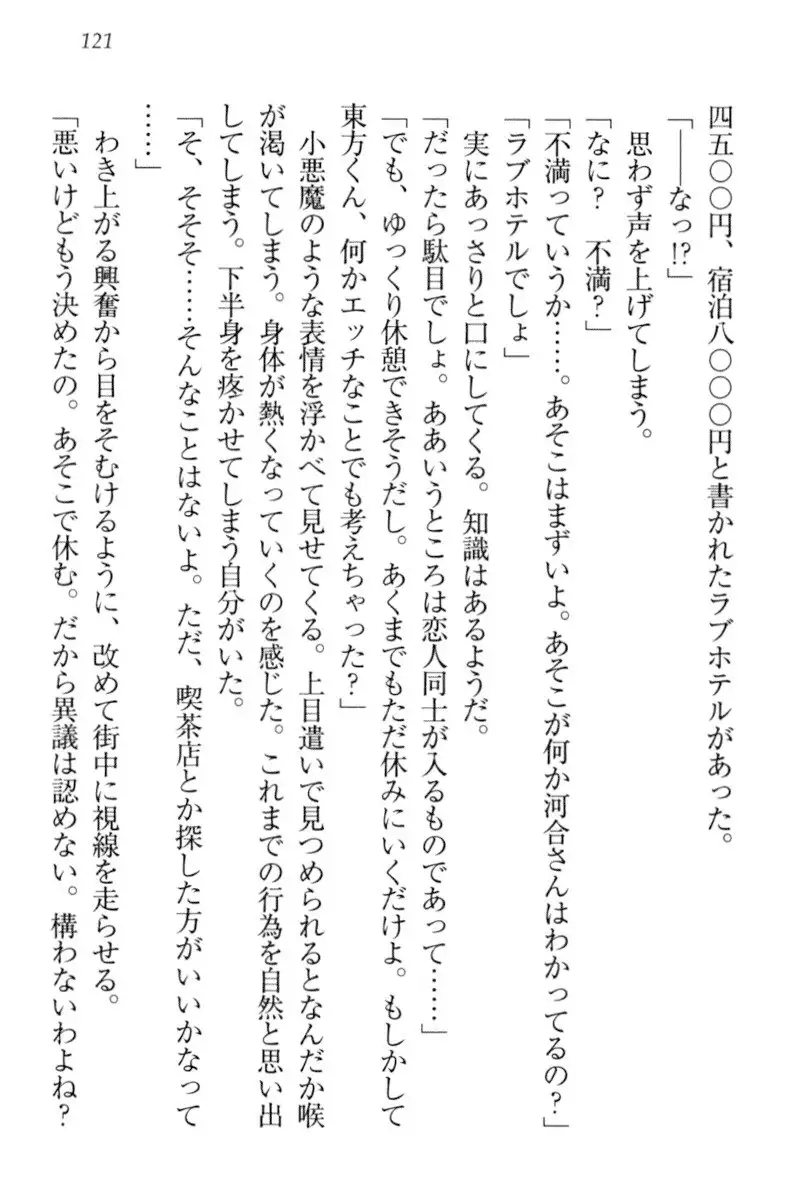 121
四五〇〇円、宿泊八〇〇〇円と書かれたラブホテルがあった。
「――なっ!?」
思わず声を上げてしまう。
「なに？　不満？」
「不満っていうか……。あそこはまずいよ。あそこが何か河合さんはわかってるの？」
「ラブホテルでしょ」
実にあっさりと口にしてくる。知識はあるようだ。
「だったら駄目でしょ。ああいうところは恋人同士が入るものであって……」
「でも、ゆっくり休憩できそうだし。あくまでもただ休みにいくだけよ。もしかして
東方くん、何かエッチなことでも考えちゃった？」
小悪魔のような表情を浮かべて見せてくる。上目遣いで見つめられるとなんだか喉
が渇いてしまう。身体が熱くなっていくのを感じた。これまでの行為を自然と思い出
してしまう。下半身を疼かせてしまう自分がいた。
「そ、そそそ……そんなことはないよ。ただ、喫茶店とか探した方がいいかなって
……」
わき上がる興奮から目をそむけるように、改めて街中に視線を走らせる。
「悪いけどもう決めたの。あそこで休む。だから異議は認めない。構わないわよね？